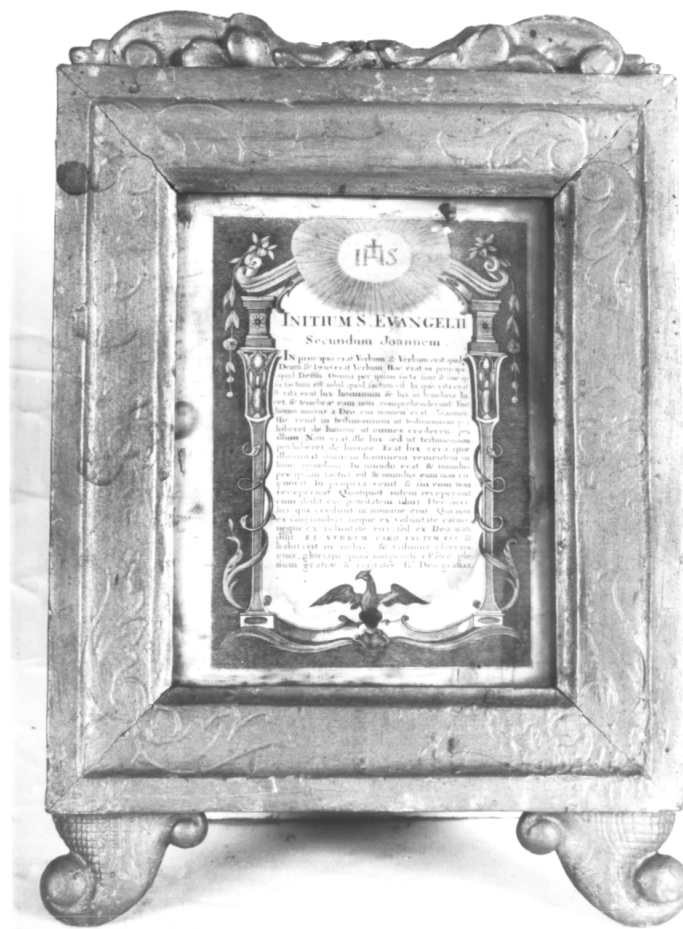 IHS
INITIUM S. EVANGELII
Secundum Joannem.
IN principio erat Verbum & Verbum erat apud
Deum & Deus erat Verbum. Hoc erat in principio
apud Deum. Omnia per ipsum facta sunt & sine ip
so factum est nihil quod factum est. In ipso vita erat
& vita erat lux hominum & lux in tenebris lu
cet & tenebræ eam non comprehenderunt. Fuit
homo missus a Deo cui nomen erat Joannes
Hic venit in testimonium ut testimonium per
hiberet de lumine ut omnes crederent per
illum. Non erat ille lux sed ut testimonium
perhiberet de lumine. Erat lux vera quæ
illuminat omnem hominem venientem in
hunc mundum. In mundo erat & mundus
per ipsum factus est & mundus eum non co
gnovit. In propria venit & sui eum non
receperunt. Quotquot autem receperunt
eum dedit eis potestatem filios Dei fieri
his qui credunt in nomine ejus. Qui non
ex sanguinibus neque ex voluntate carnis
neque ex voluntate viri sed ex Deo nati
sunt. ET VERBUM CARO FACTUM EST &
habitavit in nobis & vidimus gloriam
ejus gloriam quasi unigeniti a Patre ple
num gratiæ & veritatis. R. Deo gratias.